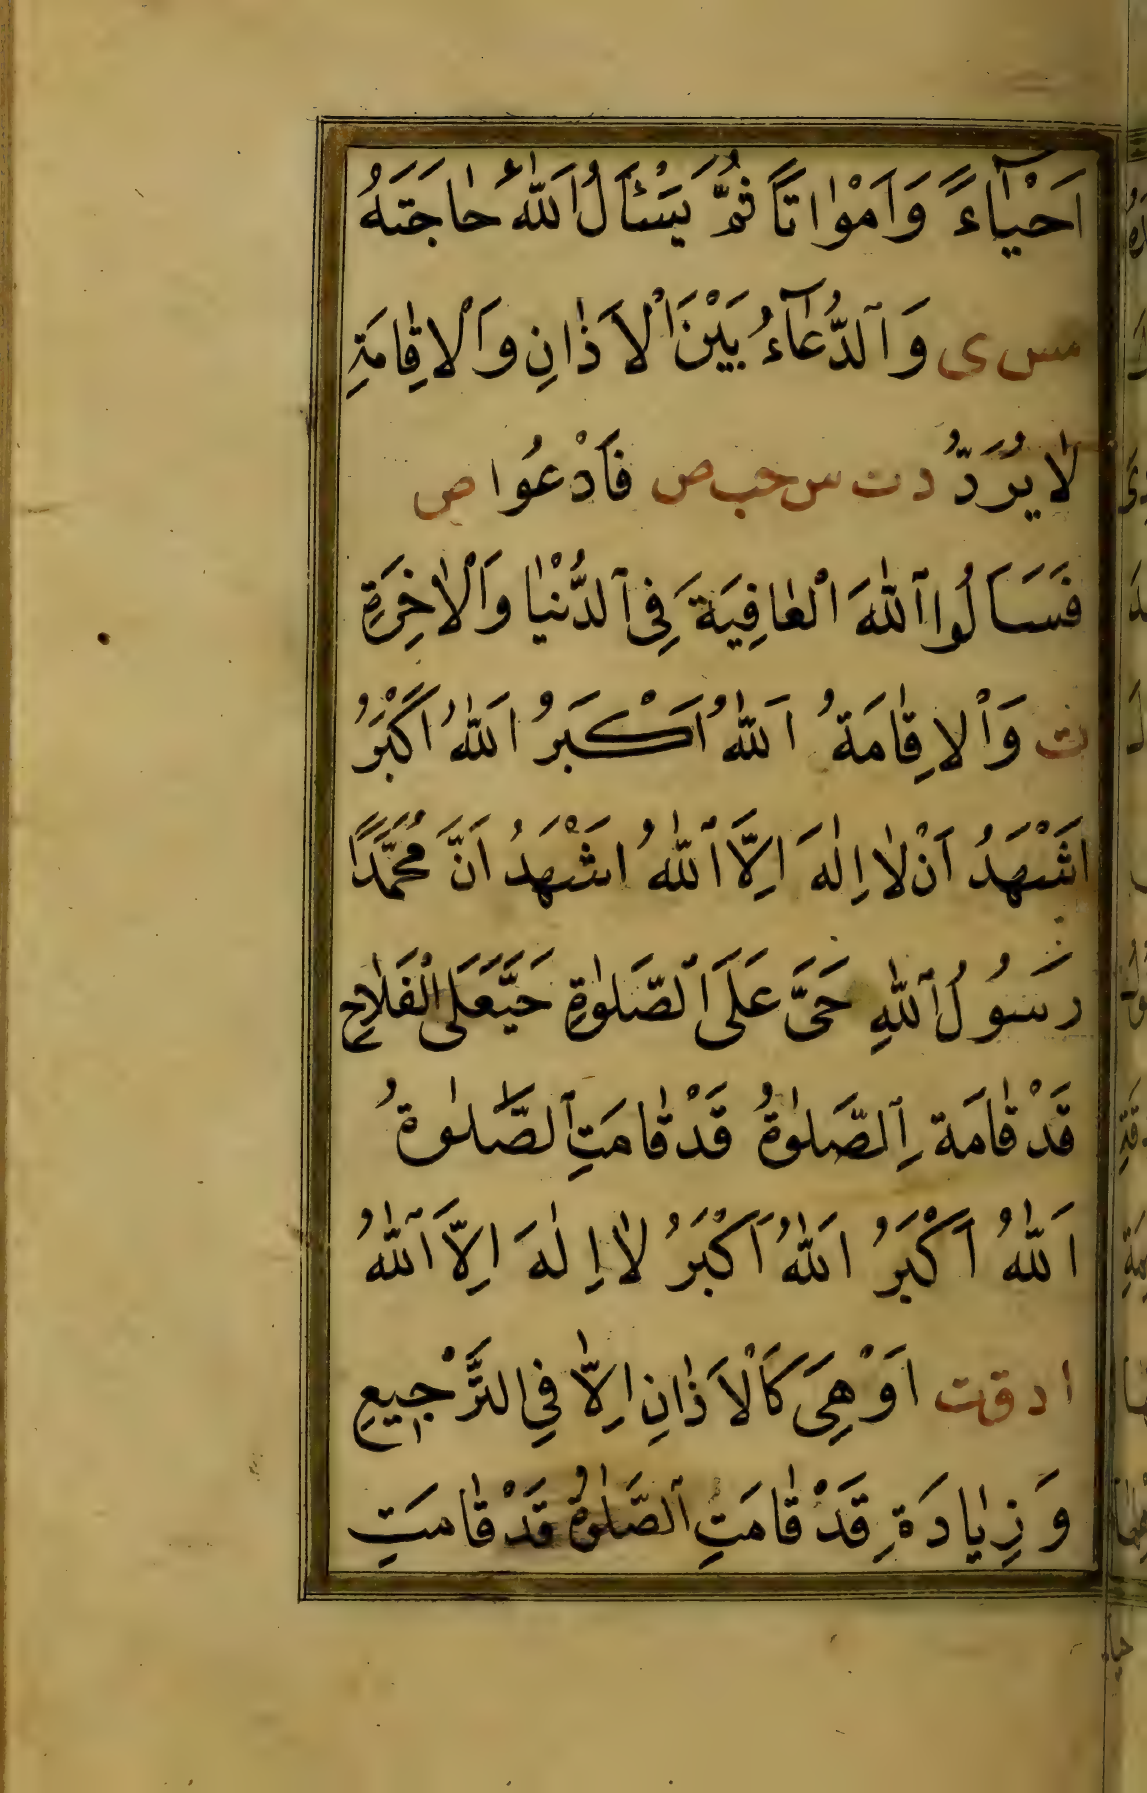 اَحْيٰآءً وَاَمْوٰاتًا ثُمَّ يَسْئَالُ اللّٰهَ حٰاجَتَهُ
مس ى وَالدُّعٰآءُ بَيْنَ الْاَذٰانِ وَالْاِقٰامَةِ
لٰا يُرَدُّ د ت س حب ص فَادْعُوا ص
فَسَاَلُوا اللّٰهَ الْعٰافِيَةَ فِى الدُّنْيٰا وَالْاٰخِرَةِ
ت وَالْاِقٰامَةُ اَللّٰهُ اَكْبَرُ اَللّٰهُ اَكْبَرُ
اَشْهَدُ اَنْ لٰا اِلٰهَ اِلَّا اللّٰهُ اَشْهَدُ اَنَّ مُحَمَّدًا
رَسُولُ اللّٰهِ حَىَّ عَلَى الصَّلٰوةِ حَىَّ عَلَى الْفَلٰاحِ
قَدْ قٰامَة ِالصَّلٰوةُ قَدْ قٰامَتِ الصَّلٰوةُ
اَللّٰهُ اَكْبَرُ اَللّٰهُ اَكْبَرُ لٰا اِلٰهَ اِلَّا اللّٰهُ
ا د ق ت اَوْ هِىَ كَالْاَذٰانِ اِلّٰا فِى التَّرْجِيعِ
وَزِيٰادَةِ قَدْ قٰامَتِ الصَّلٰوةُ قَدْ قٰامَتِ